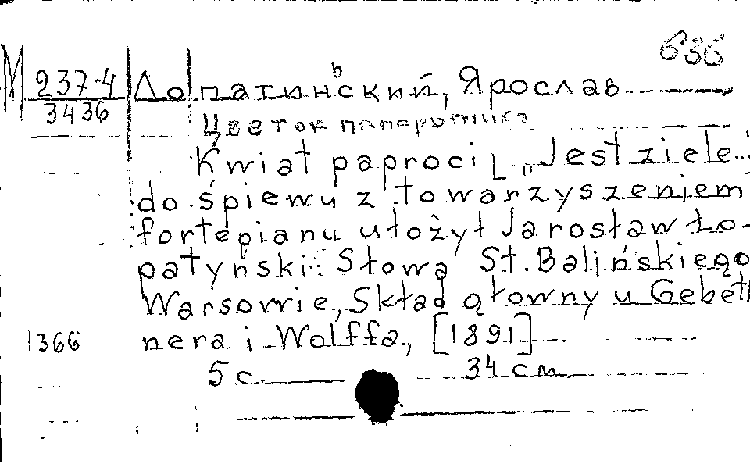 636
М 237-4
3436
Лопатиньский, Ярослав
Цветок папоротника
Kwiat paproci [„Jest ziele..."
do śpiewu z towarzyszeniem
fortepianu ułożył Jarosław Ło-
patyński: Słowa St. Balińskiego
Warsowie, Skład głowny u Gebeth
1366 nera i Wolffa, [1891]
5 с. 34 см